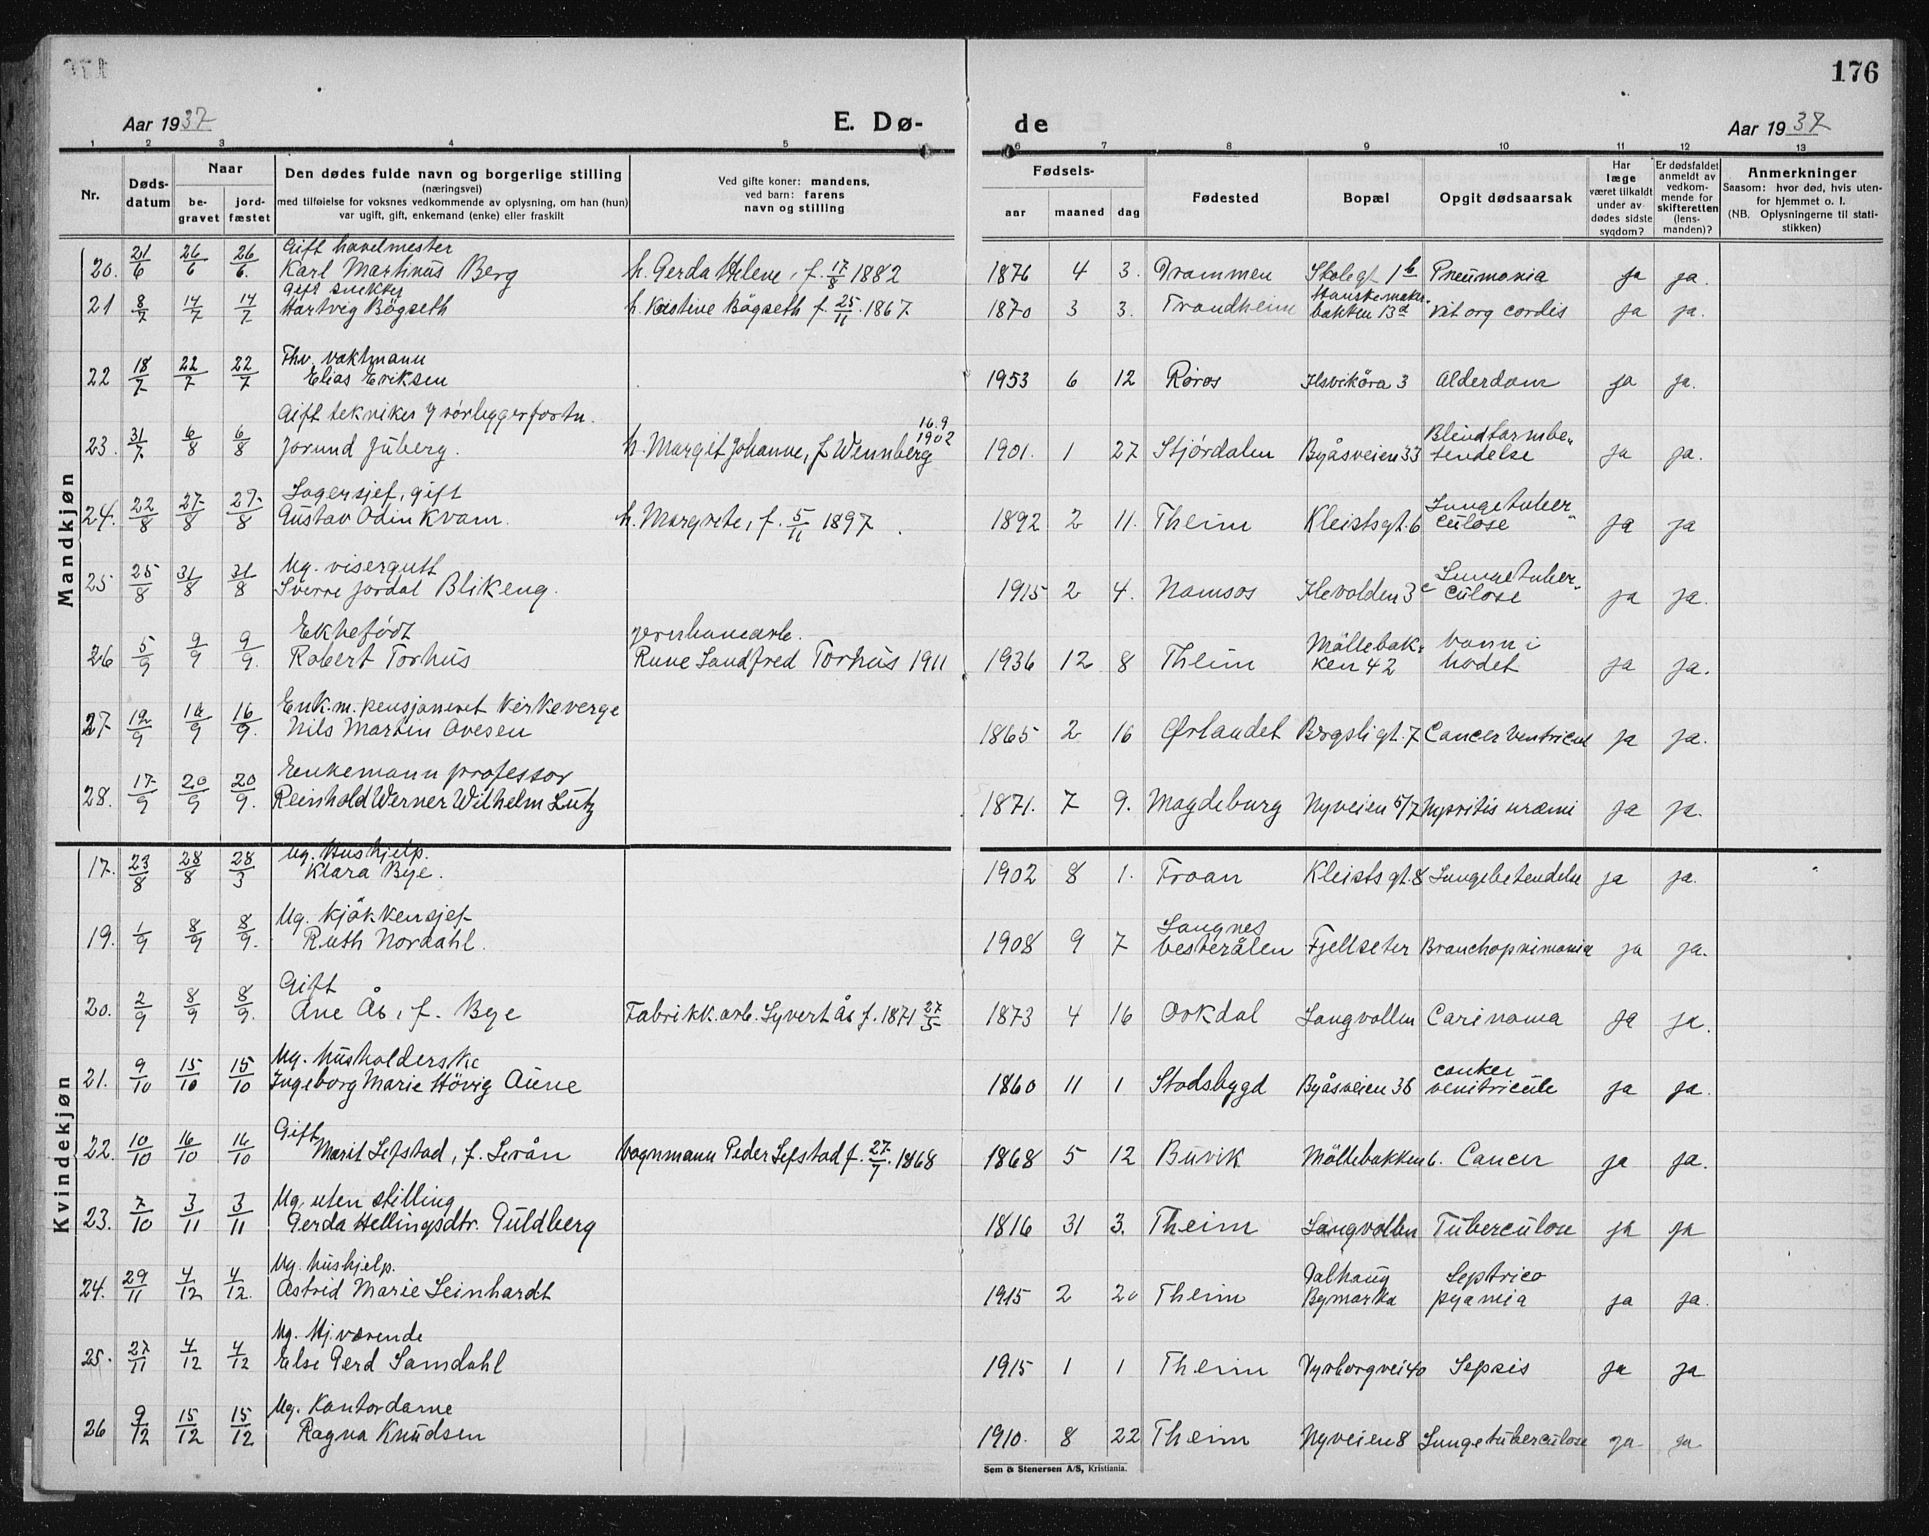 176
Aar 1937 E. Dø- de Aar 1937
1 2 3 4 5 6 7 8 9 10 11 12 13
Nr. Døds-datum Naar be-gravet jord-fæstet
Den dødes fulde navn og borgerlige stilling (næringsvei) med tilføielse for voksnes vedkommende av oplysning, om han (hun) var ugift, gift, enkemand (enke) eller fraskilt
Ved gifte koner: mandens, ved barn: farens navn og stilling
Fødsels- aar maaned dag
Fødested Bopæl Opgit dødsaarsak
Har læge været tilkaldt under av-dødes sidste sygdom?
Er dødsfaldet anmeldt av vedkom-mende for skifteretten (lens-manden)?
Anmerkninger Saasom: hvor død, hvis uten-for hjemmet o. l. (NB. Oplysningerne til stati-stikken)
Mandkjøn
20. 21/6 26/6 26/6. Gift havelmester
Karl Martinus Berg h. Gerda Helene, f. 17/8 1882 1876 4 3. Drammen Skolegt 1b Pneumonia ja ja.
21 8/7 14/7 14/7 Gift snekker
Hartvig Bögseth h. Kristine Bögseth f. 25/11. 1867 1870 3 3. Trondheim Hanskemaker-bakken 13a Vit org cordis ja ja.
22 18/7 22/7 22/7 Fhv. vaktmann
Elias Eriksen 1953 6 12 Røros Ilsvikøra 3 Alderdom ja ja.
Gift tekniker
23. 31/7. 6/8 6/8 Jorund Juberg. h. Margit Johanne, f Wennberg 16.9 1902 1901. 1 27 Stjørdalen Byåsveien 33 Blindtarmbe-tendelse ja ja.
24. 22/8 27/8 27/8 Lagersjef, gift
Gustav Odin Kvam. h. Margrete, f. 5/11 1897. 1892 2 11. Theim Kleistsgt. 6 Lungetuber-culose ja ja
25 25/8 31/8 31/8 Ug. visergutt
Sverre Jordal Blikeng. 1915 2 4. Namsos Ilevolden 3c Lungetuber-culose ja ja.
26 5/9 9/9 9/9. Ektefødt jernbanearb.
Robert Torhus Rune Sandfred Torhus 1911 1936 12 8 Theim Möllebak-ken 42 vann i hodet ja ja.
27 12/9 16/9 16/9. Enk.m. pensjoneret Kirkeverge
Nils Martin Ovesen 1865 2 16 Ørlandet Bergsligt. 7 Cancer ventricul ja ja.
28. 17/9 20/9 20/9. Enkemann professor
Reinhold Werner Wilhelm Lutz 1871. 7 9. Magdeburg Nyveien 5/7 Nyvritis uræmi ja ja.
Kvindekjøn
17. 23/8 28/8 28/3 Ug. Hushjelp.
Klara Bye. 1902 8 1. Froan Kleistsgt. 8 Lungebetendelse ja ja.
19. 1/9 8/9 8/9. Ug. Kjökkensjef
Ruth Nordahl. 1908 9 7 Langnes Vesterålen Fjellseter Bronchopnimonia ja ja.
20. 2/9 8/9 8/9. Gift
Ane Ås, f. Bye Fabrikk.arb. Syvert Ås f. 1871 27/5 1873 4 16 Orkdal Langvollen Carinoma ja ja.
21. 9/10 15/10 15/10 Ug. husholderske
Ingeborg Marie Hövig Aune 1860 11 1 Stadsbygd Byåsveien 36 canker ventricule ja ja.
22. 10/10 16/10 16/10 Gift
Marit Lefstad, f. Lerån Vognmann Peder Lefstad f. 27/7. 1868 1868 5 12 Buvik Möllebakken 6. Cancer ja ja.
23. 7/10 3/11 3/11 Ug. uten stilling
Gerda Hellingsdtr. Guldberg 1816 31 3. Theim Langvollen Tuberculose ja ja
24. 29/11 4/12 4/12. Ug. hushjelp.
Astrid Marie Leinhardt 1915 2 20 Theim Dalhaug Bymarka Septrico pyamia ja ja.
25. 27/11 4/12 4/12 Ug. Hj. værende
Else Gerd Samdahl 1915 1 1 Theim Dyrborgvei 40 Sepsis ja ja
26 9/12 15/12 15/12 Ug. Kontordame
Ragna Knudsen 1910. 8 22 Theim Nyveien 8 Lungetuberculose ja ja
Sem & Stenersen A/S, Kristiania.